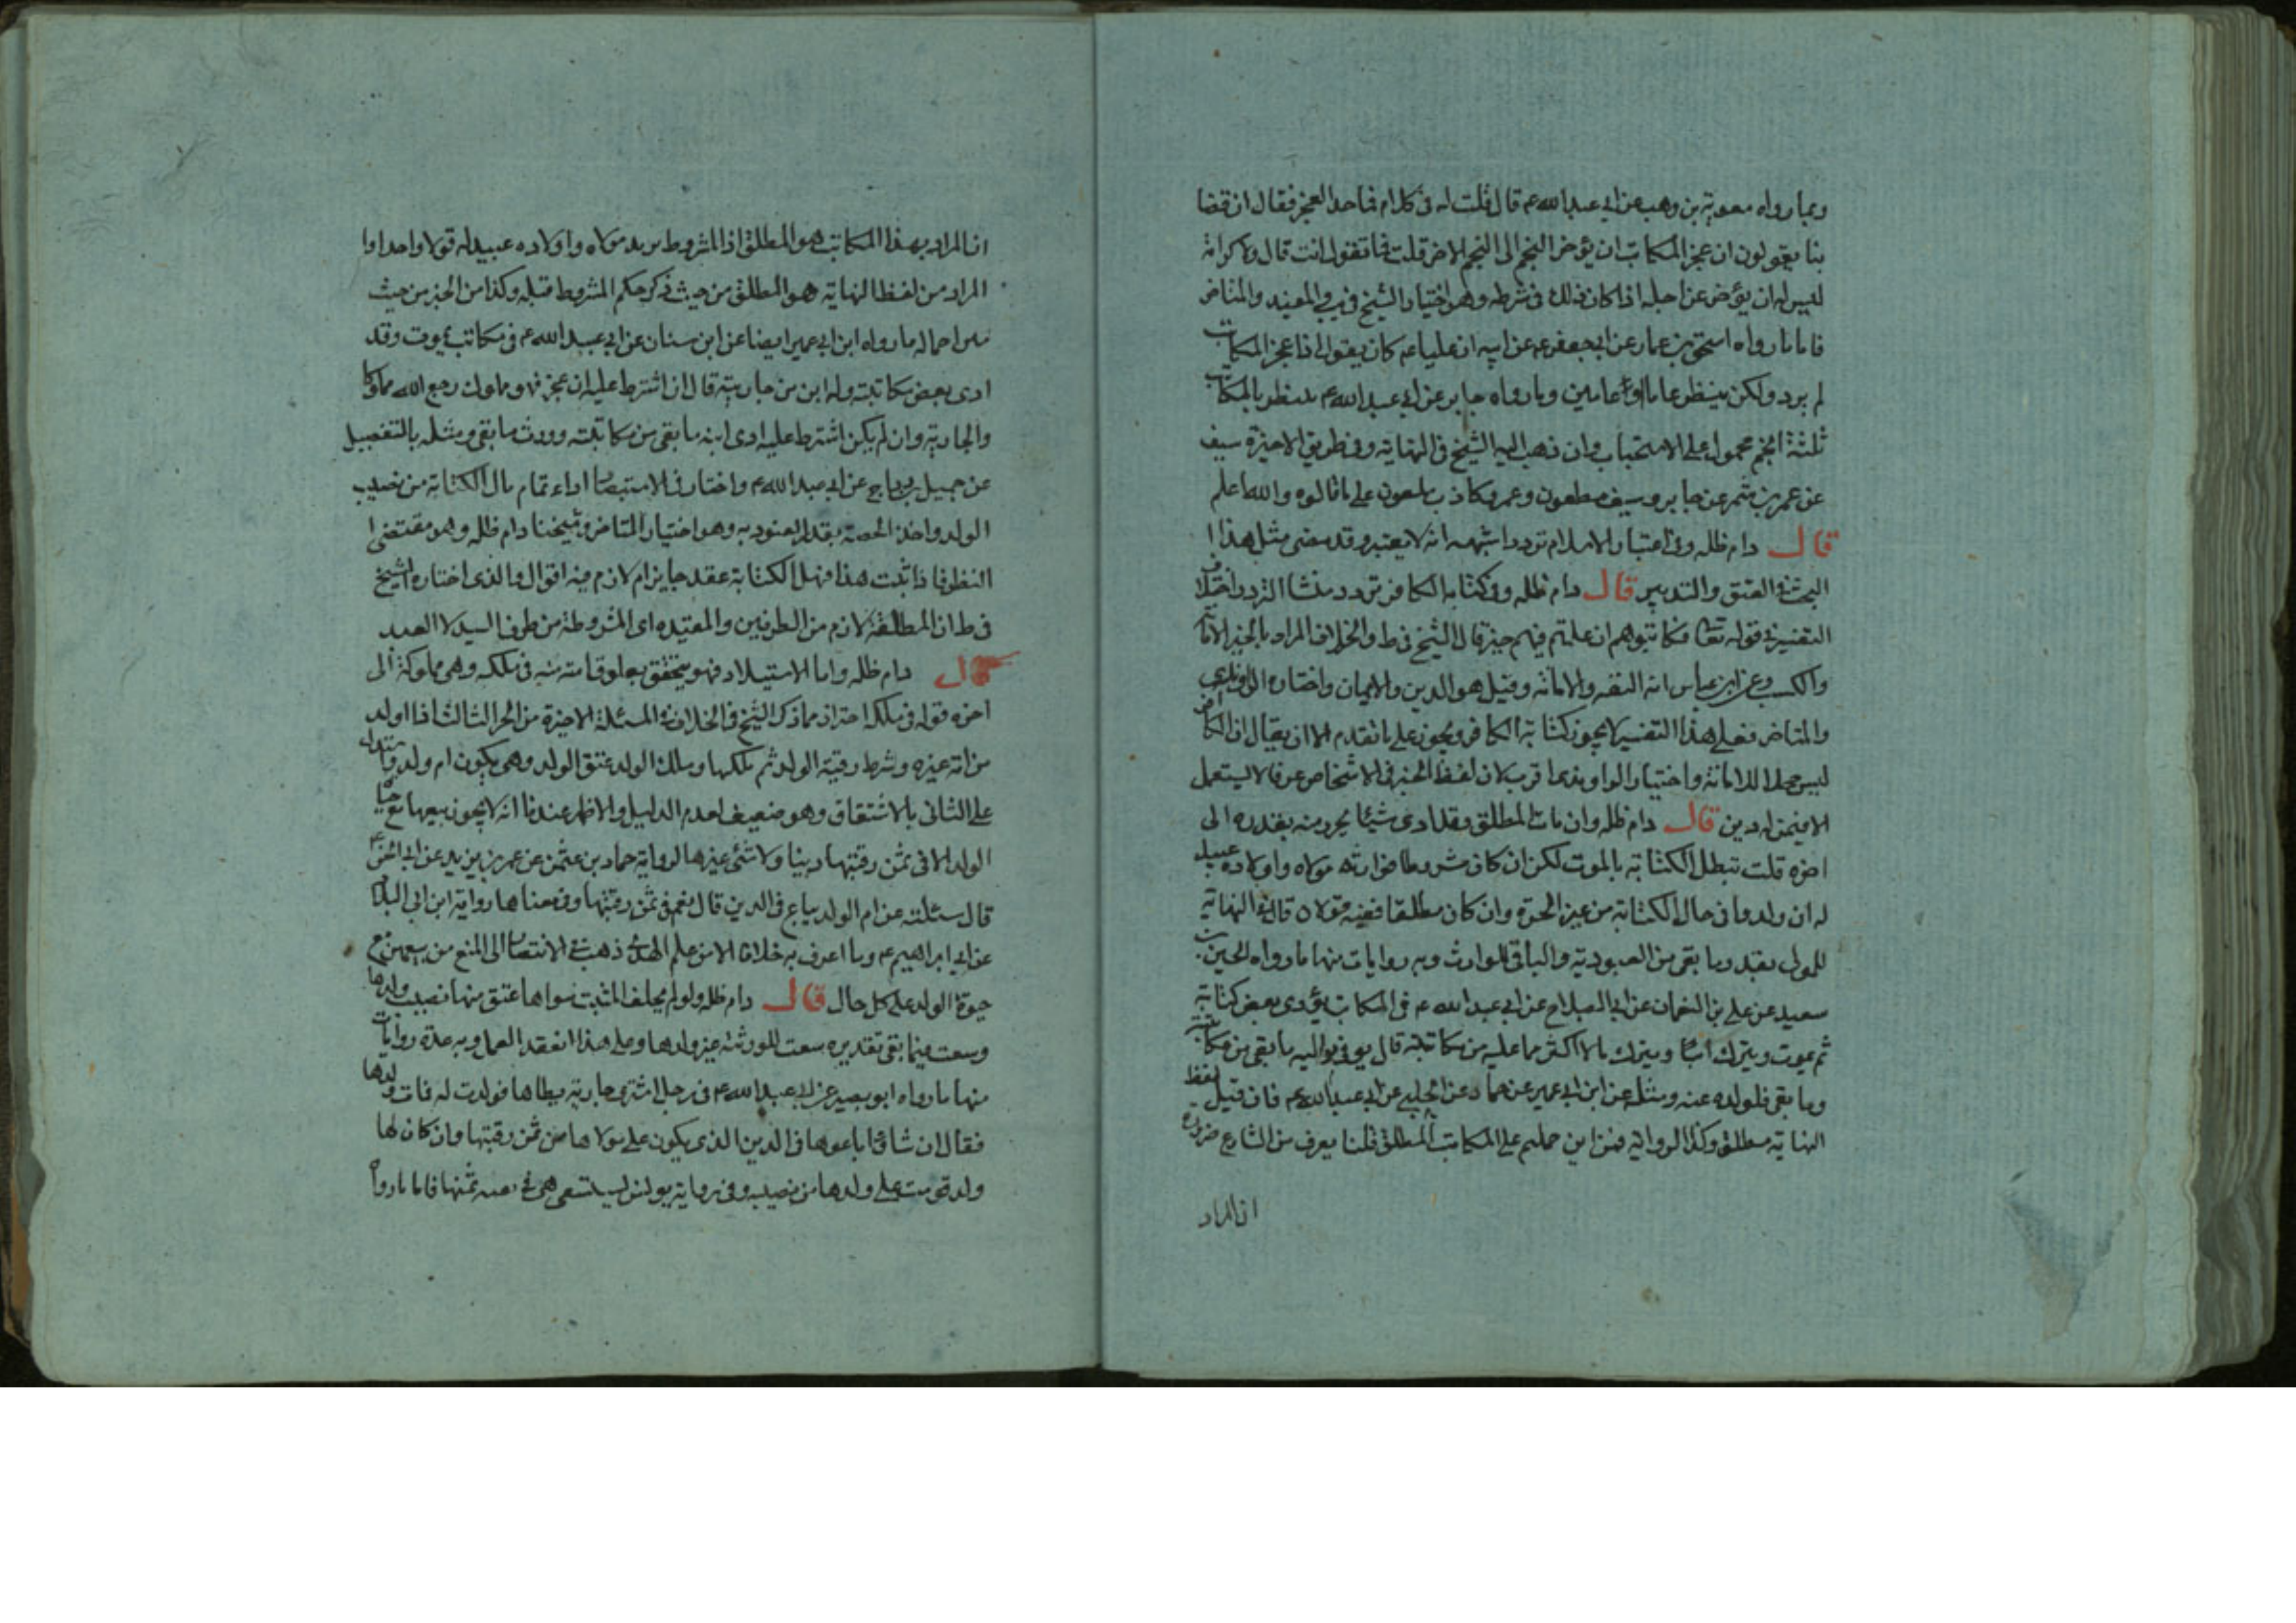 وبما رواه معوية بن وهب عن ابي عبد الله عم قال قلت له في كلام فما حد العجز فقال ان قضا
بنا يقولون ان عجز المكاتب ان يؤخر النجم الى النجم الاخر قلت فما تقول انت قال لا كرامة
ليس له ان يؤخر عن اجله اذا كان ذلك في شرطه وهو اختيار الشيخ في يب والمفيد والمتاخر
فاما ما رواه اسحق بن عمار عن ابي جعفر عم عن ابيه ان عليا عم كان يقول اذا عجز المكاتب
لم يرد ولكن ينتظر عاما او عامين وما رواه جابر عن ابي عبد الله عم ينتظر بالمكاتب
ثلثة انجم محمول على الاستحباب وان ذهب اليه الشيخ في النهاية وفي طريق الاخيرة سيف
عن عمر بن شمر عن جابر وسيف مطعون وعمر كاذب ملعون على ما قالوه والله اعلم
قال دام ظله وفي اعتبار الاسلام تردد اشبهه انه لا يعتبر وقد مضى مثل هذا
البحث في العتق والتدبير قال دام ظله وفي كتابة الكافر تردد منشا التردد اختلاف
التفسير في قوله تعا فكاتبوهم ان علمتم فيهم خيرا قال الشيخ في ط والخلاف المراد بالخير الامانة
والكسب وعن ابن عباس انه الثقة والامانة وقيل هو الدين والايمان واختاره الراوندي
والمتاخر فعلى هذا التفسير لا يجوز كتابة الكافر ويجوز على ما تقدم الا ان يقال ان الكافر
ليس محلا للامانة واختيار الراوندي اقرب لان لفظ الخير في الاشخاص عرفا لا يستعمل
الا فيمن له دين قال دام ظله وان مات المطلق وقد ادى شيئا يحرر منه بقدره الى
اخره قلت تبطل الكتابة بالموت لكن ان كان مشروطا فوارثه مولاه واولاده عبيد
له ان ولدوا في حال الكتابة من غير الحرة وان كان مطلقا ففيه قولان قال في النهاية
للمولى بقدر ما بقي من العبودية والباقي للوارث وبه روايات منها ما رواه الحسين بن
سعيد عن علي بن النعمان عن ابي الصباح عن ابي عبد الله عم في المكاتب يؤدي بعض كتابته
ثم يموت ويترك ابنا ويترك مالا اكثر مما عليه من مكاتبته قال يوفي مواليه ما بقي من مكاتبته
وما بقي فلولده عنه ومثله عن ابن ابي عمير عن حماد عن الحلبي عن ابي عبد الله عم فان قيل لفظ
النهاية مطلق وكذا الرواية فمن اين حملتم على المكاتب المطلق قلنا يعرف من الشارع ضرورة
ان المراد
ان المراد بهذا المكاتب هو المطلق اذ المشروط يرد مولاه واولاده عبيد له قولا واحدا واما
المراد من لفظ النهاية هو المطلق من حيث ذكر حكم المشروط قبله وكذا من الخبر من حيث
اجماله ما رواه ابن ابي عمير ايضا عن ابن سنان عن ابي عبد الله عم في مكاتب يموت وقد
ادى بعض مكاتبته وله ابن من جاريته قال ان اشترط عليه ان عجز فهو مملوك رجع اليه مملوكا
والجارية وان لم يكن اشترط عليه ادى ابنه ما بقي من مكاتبته وورث ما بقي ومثله بالتفصيل
عن جميل بن دراج عن ابي عبد الله عم واختار في الاستبصار اداء تمام مال الكتابة من نصيب
الولد واخذ الحصة بقدر العبودية وهو اختيار المتاخر وشيخنا دام ظله وهو مقتضى
النظر فاذا ثبت هذا فهل الكتابة عقد جايز ام لازم فيه اقوال والذي اختاره الشيخ
في ط ان المطلقة لازم من الطرفين والمقيدة اي المشروطة من طرف السيد لا العبد
قال دام ظله واما الاستيلاد فهو يتحقق بعلوق امته منه في ملكه وهي مملوكة الى
اخره قوله في ملكه احتراز مما ذكر الشيخ في الخلاف في المسئلة الاخيرة من الجز الثالث اذا اولد
من امة غيره وشرط رقية الولد ثم ملكها وملك الولد عتق الولد وهي يكون ام ولد واستدل
على الثاني بالاشتقاق وهو ضعيف لعدم الدليل والاظهر عندنا انه لا يجوز بيعها مع حيا
الولد الا في ثمن رقبتها دينا ولا شئ غيرها لرواية حماد بن عثمن عن عمر بن يزيد عن ابي الحسن عم
قال سئلته عن ام الولد يباع في الدين قال نعم في ثمن رقبتها وفي معناها رواية ابن ابي البلاد
عن ابي ابراهيم عم وما اعرف به خلافا الا من علم الهدى ذهب في الانتصار الى المنع من بيعهن مع
حيوة الولد على كل حال قال دام ظله ولو لم يخلف الميت سواها عتق منها نصيب ولدها
وسعت فيما بقي تقديره سعت للورثة غير ولدها وعلى هذا انعقد العمل وبه عدة روايات
منها ما رواه ابو بصير عن ابي عبد الله عم في رجل اشترى جارية يطاها فولدت له فمات ولدها
فقال ان شاؤا باعوها في الدين الذي يكون على مولاها من ثمن رقبتها وان كان لها
ولد قومت على ولدها من نصيبه وفي رواية يونس ليستسعى هي في ثمنها فاما ما رواه